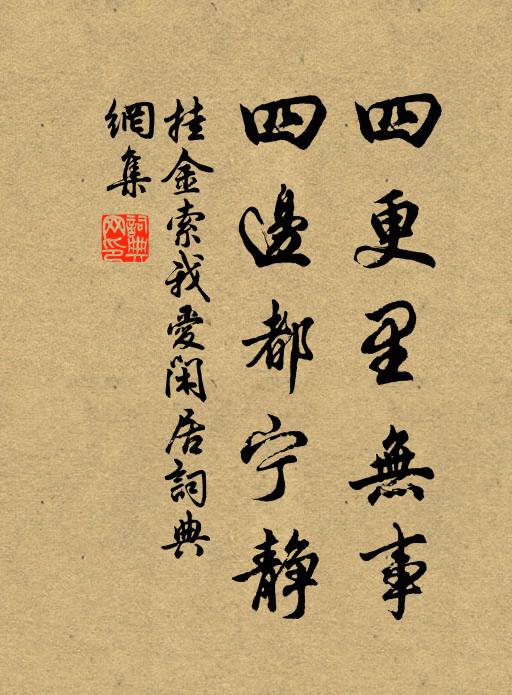 四更里無事
四邊都宁静
挂金索我愛閑居詞典
網集
詞典
网印